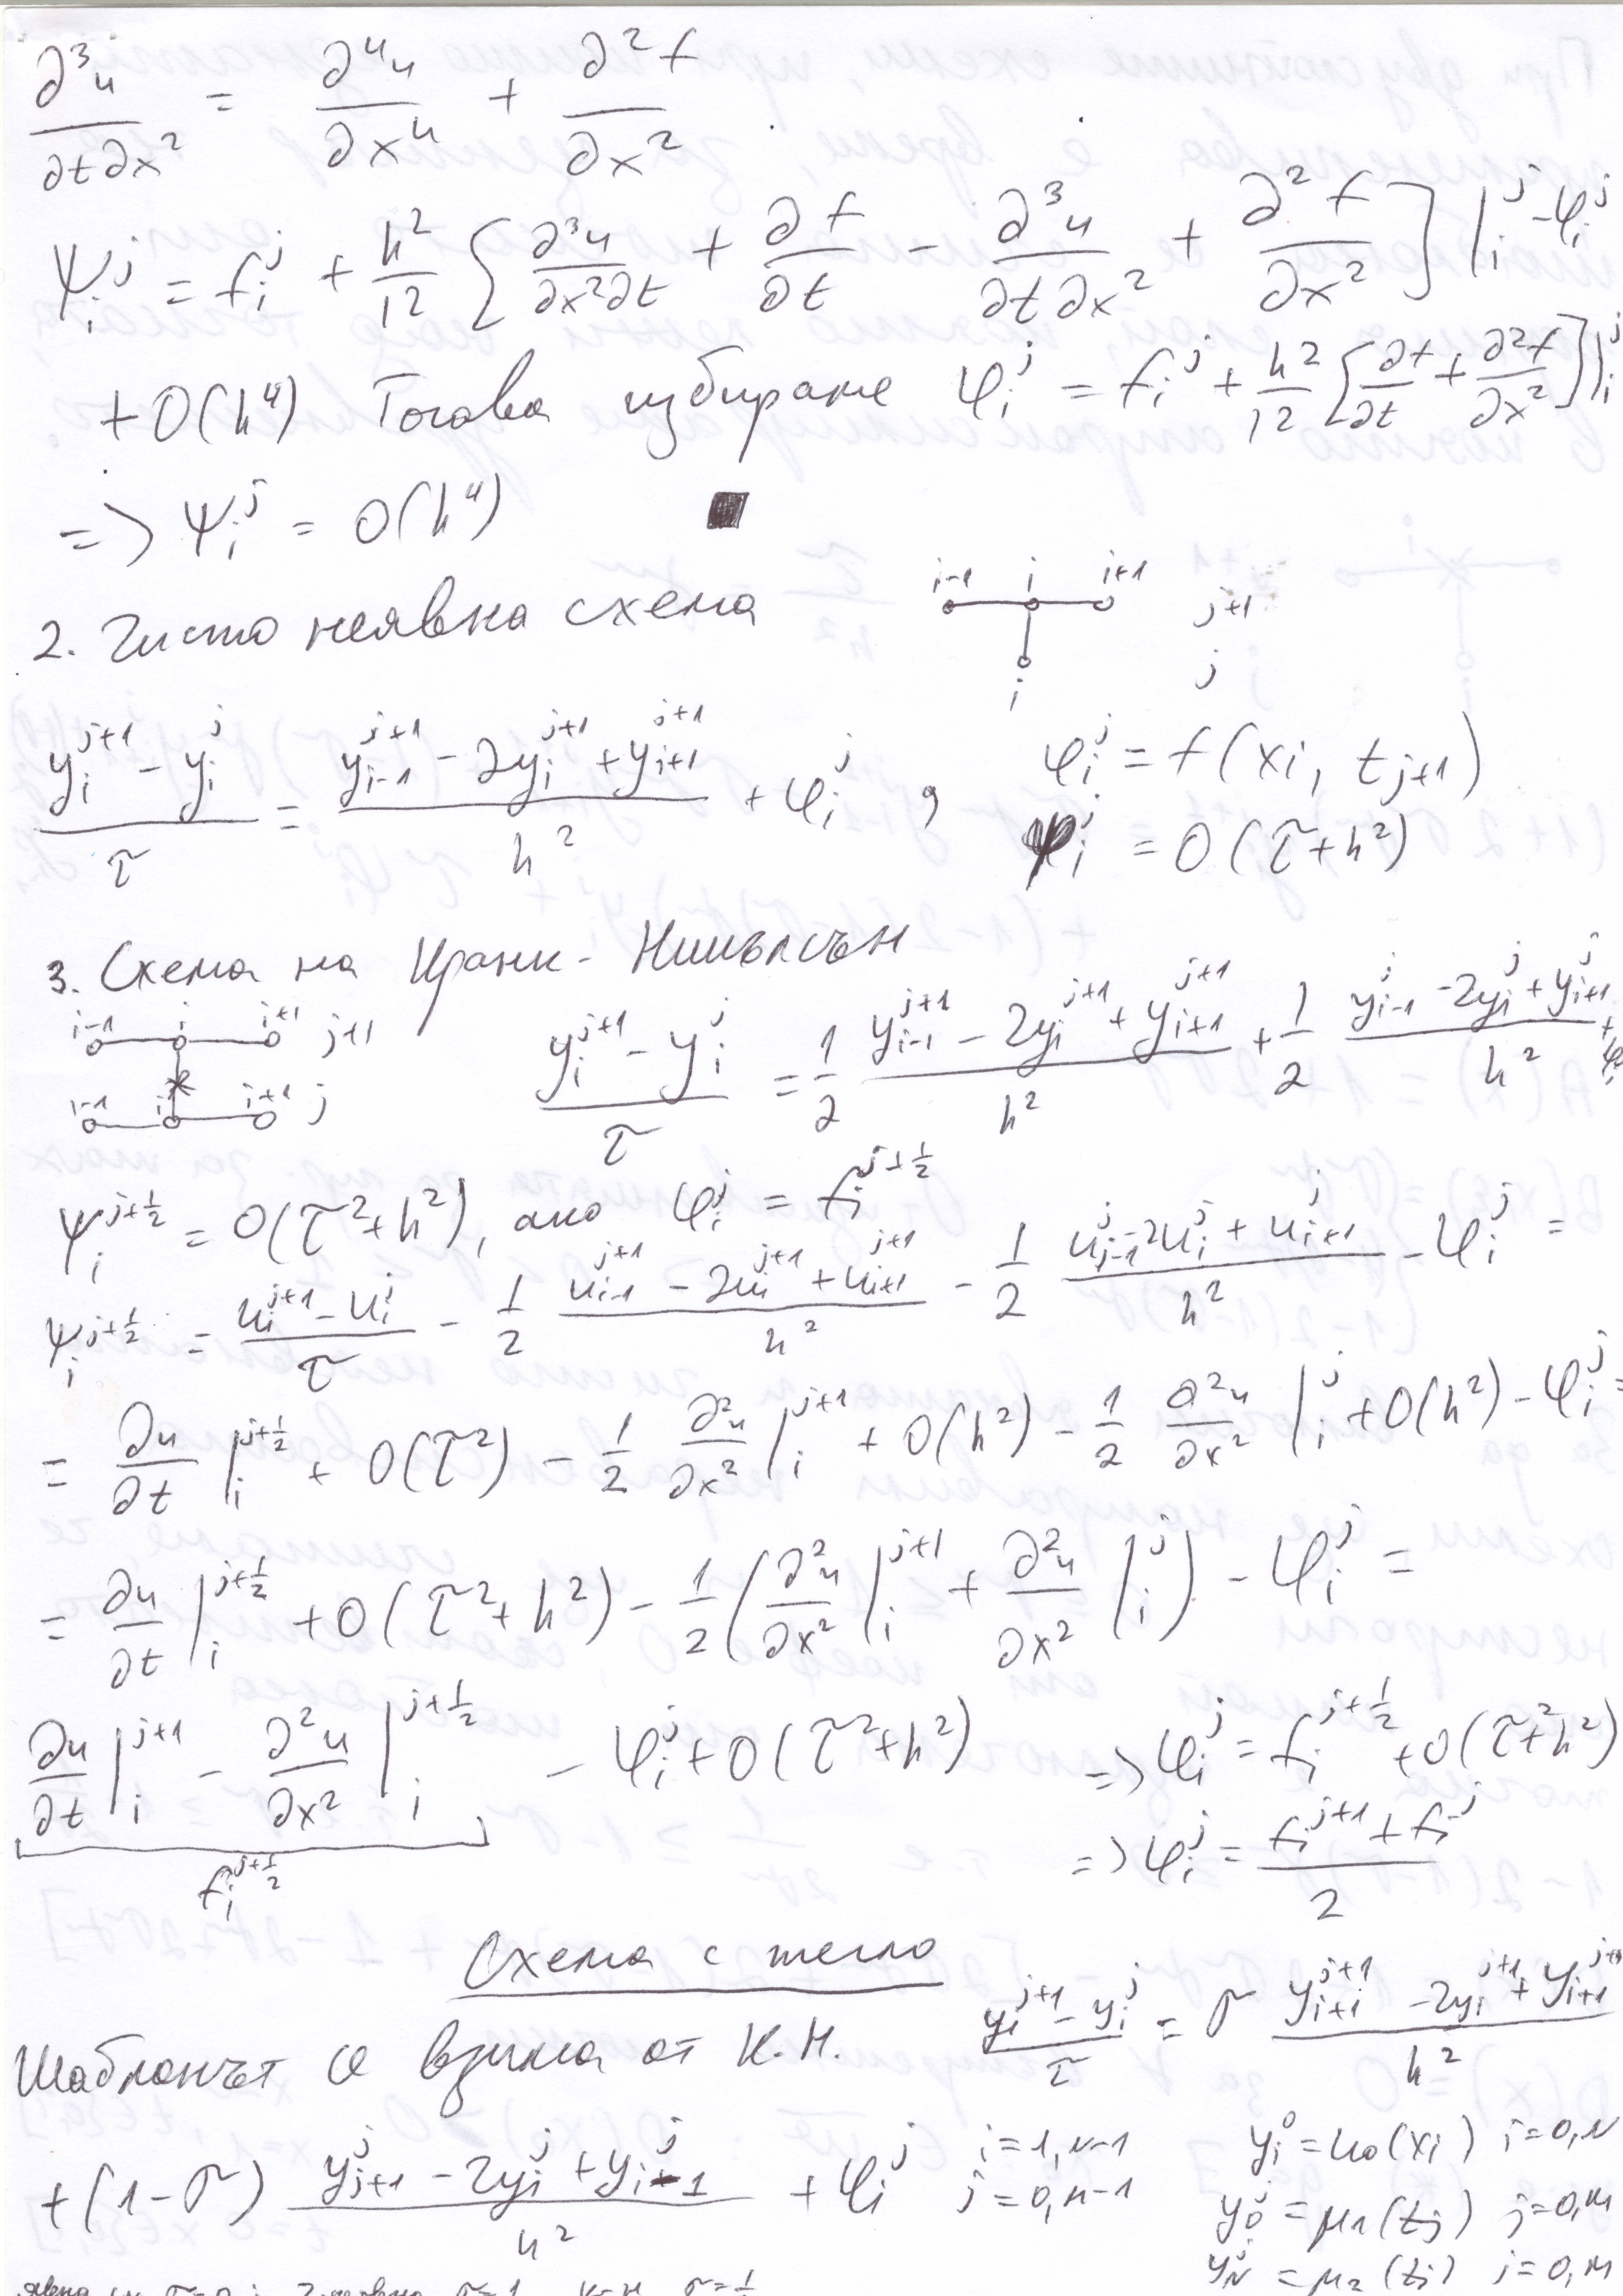 ∂³u/∂t∂x² = ∂⁴u/∂x⁴ + ∂²f/∂x²
ψᵢʲ = fᵢʲ + h²/12 [∂³u/∂x²∂t + ∂f/∂t − ∂³u/∂t∂x² + ∂²f/∂x²]|ᵢʲ − φᵢʲ
+ O(h⁴) Тогава избираме φᵢʲ = fᵢʲ + h²/12 [∂f/∂t + ∂²f/∂x²]|ᵢʲ
=> ψᵢʲ = O(h⁴) ■
i-1 i i+1
2. Чисто неявна схема j+1
i j
(yᵢʲ⁺¹ − yᵢʲ)/τ = (yᵢ₋₁ʲ⁺¹ − 2yᵢʲ⁺¹ + yᵢ₊₁ʲ⁺¹)/h² + φᵢʲ , φᵢʲ = f(xᵢ, tⱼ₊₁)
ψᵢʲ = O(τ+h²)
3. Схема на Кранк-Никълсън
i-1 i i+1 j+1
i-1 i i+1 j
(yᵢʲ⁺¹ − yᵢʲ)/τ = 1/2 (yᵢ₋₁ʲ⁺¹ − 2yᵢʲ⁺¹ + yᵢ₊₁ʲ⁺¹)/h² + 1/2 (yᵢ₋₁ʲ − 2yᵢʲ + yᵢ₊₁ʲ)/h² + φᵢ
ψᵢ^(j+1/2) = O(τ²+h²), ако φᵢʲ = fᵢ^(j+1/2)
ψᵢ^(j+1/2) = (uᵢʲ⁺¹ − uᵢʲ)/τ − 1/2 (uᵢ₋₁ʲ⁺¹ − 2uᵢʲ⁺¹ + uᵢ₊₁ʲ⁺¹)/h² − 1/2 (uⱼ₋₁ʲ − 2uᵢʲ + uᵢ₊₁ʲ)/h² − φᵢʲ =
= ∂u/∂t|ᵢ^(j+1/2) + O(τ²) − 1/2 ∂²u/∂x²|ᵢʲ⁺¹ + O(h²) − 1/2 ∂²u/∂x²|ᵢʲ + O(h²) − φᵢʲ =
= ∂u/∂t|ᵢ^(j+1/2) + O(τ²+h²) − 1/2 (∂²u/∂x²|ᵢʲ⁺¹ + ∂²u/∂x²|ᵢʲ) − φᵢʲ =
∂u/∂t|ᵢʲ⁺¹ − ∂²u/∂x²|ᵢ^(j+1/2) − φᵢʲ + O(τ²+h²) => φᵢʲ = fᵢ^(j+1/2) + O(τ²+h²)
fᵢ^(j+1/2) => φᵢʲ = (fᵢʲ⁺¹ + fᵢʲ)/2
Схема с тегло
Шаблонът се взима от К.Н. (yᵢʲ⁺¹ − yᵢʲ)/τ = σ (yᵢ₊₁ʲ⁺¹ − 2yᵢʲ⁺¹ + yᵢ₊₁ʲ⁺¹)/h²
+ (1−σ) (yⱼ₊₁ʲ − 2yᵢʲ + yᵢ₋₁ʲ)/h² + φᵢʲ i=1,N-1
j=0,M-1
yᵢ⁰ = u₀(xᵢ) i=0,N
y₀ʲ = μ₁(tⱼ) j=0,M
y_Nʲ = μ₂(tⱼ) j=0,M